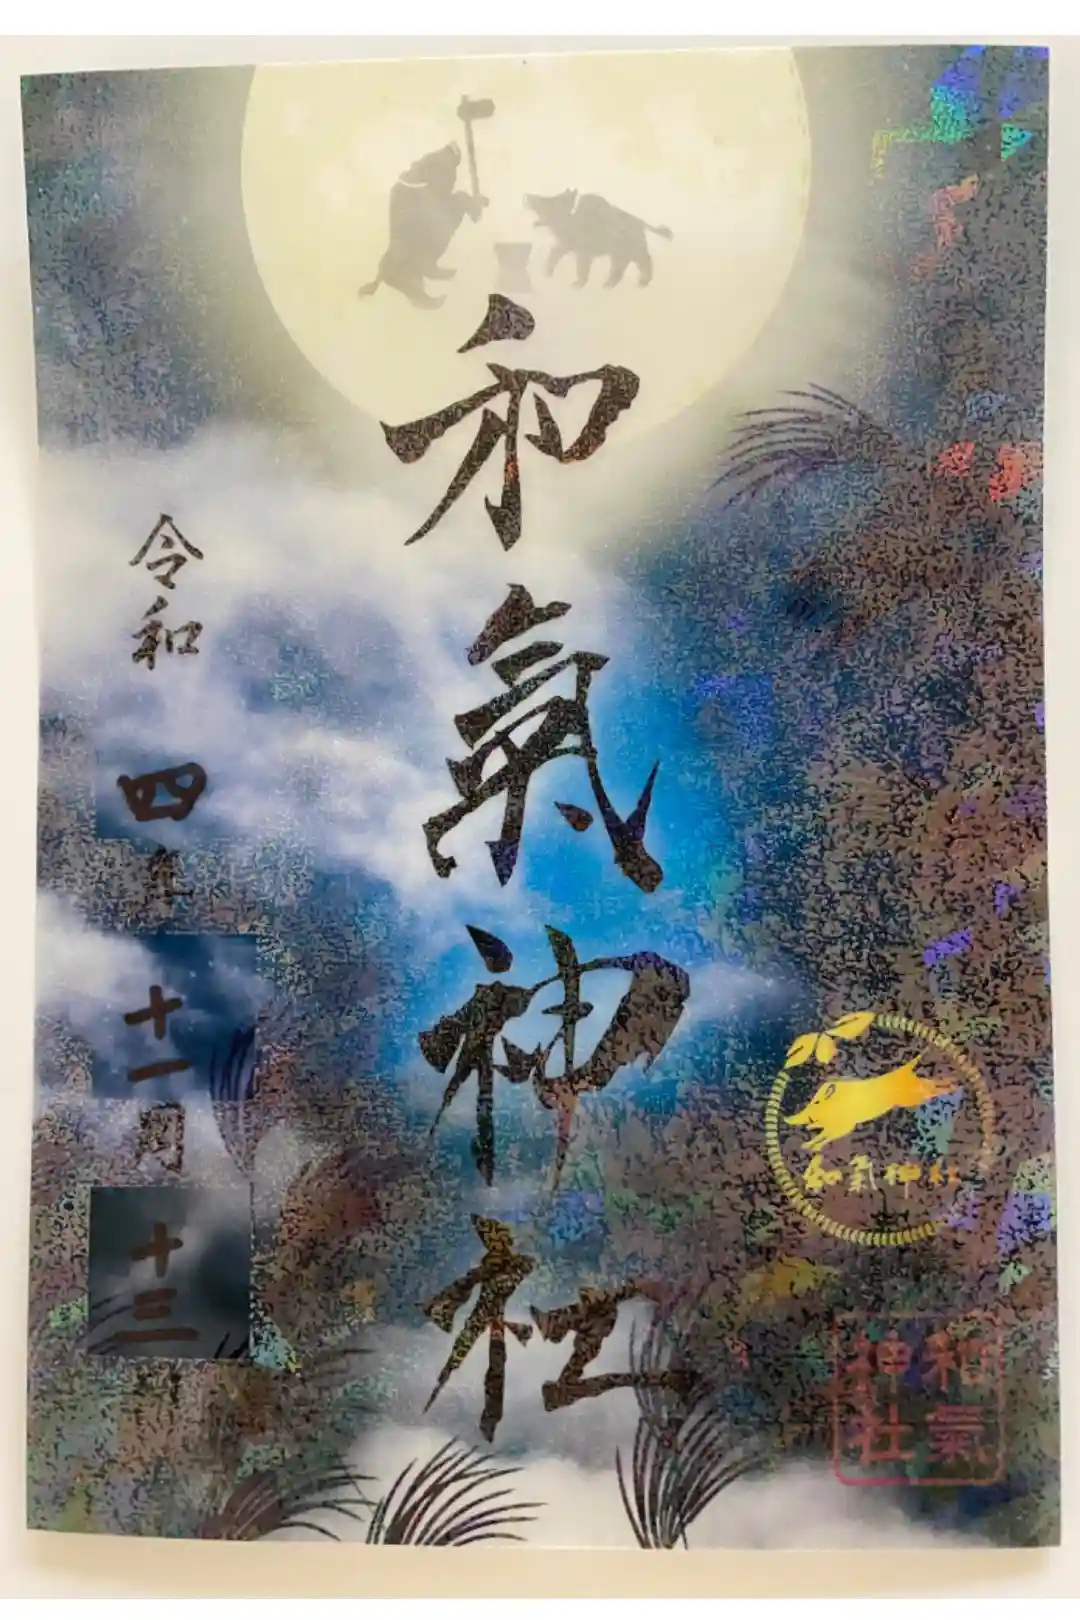 和氣神社
令和四年十一月十三日
和氣神社
和氣
神社